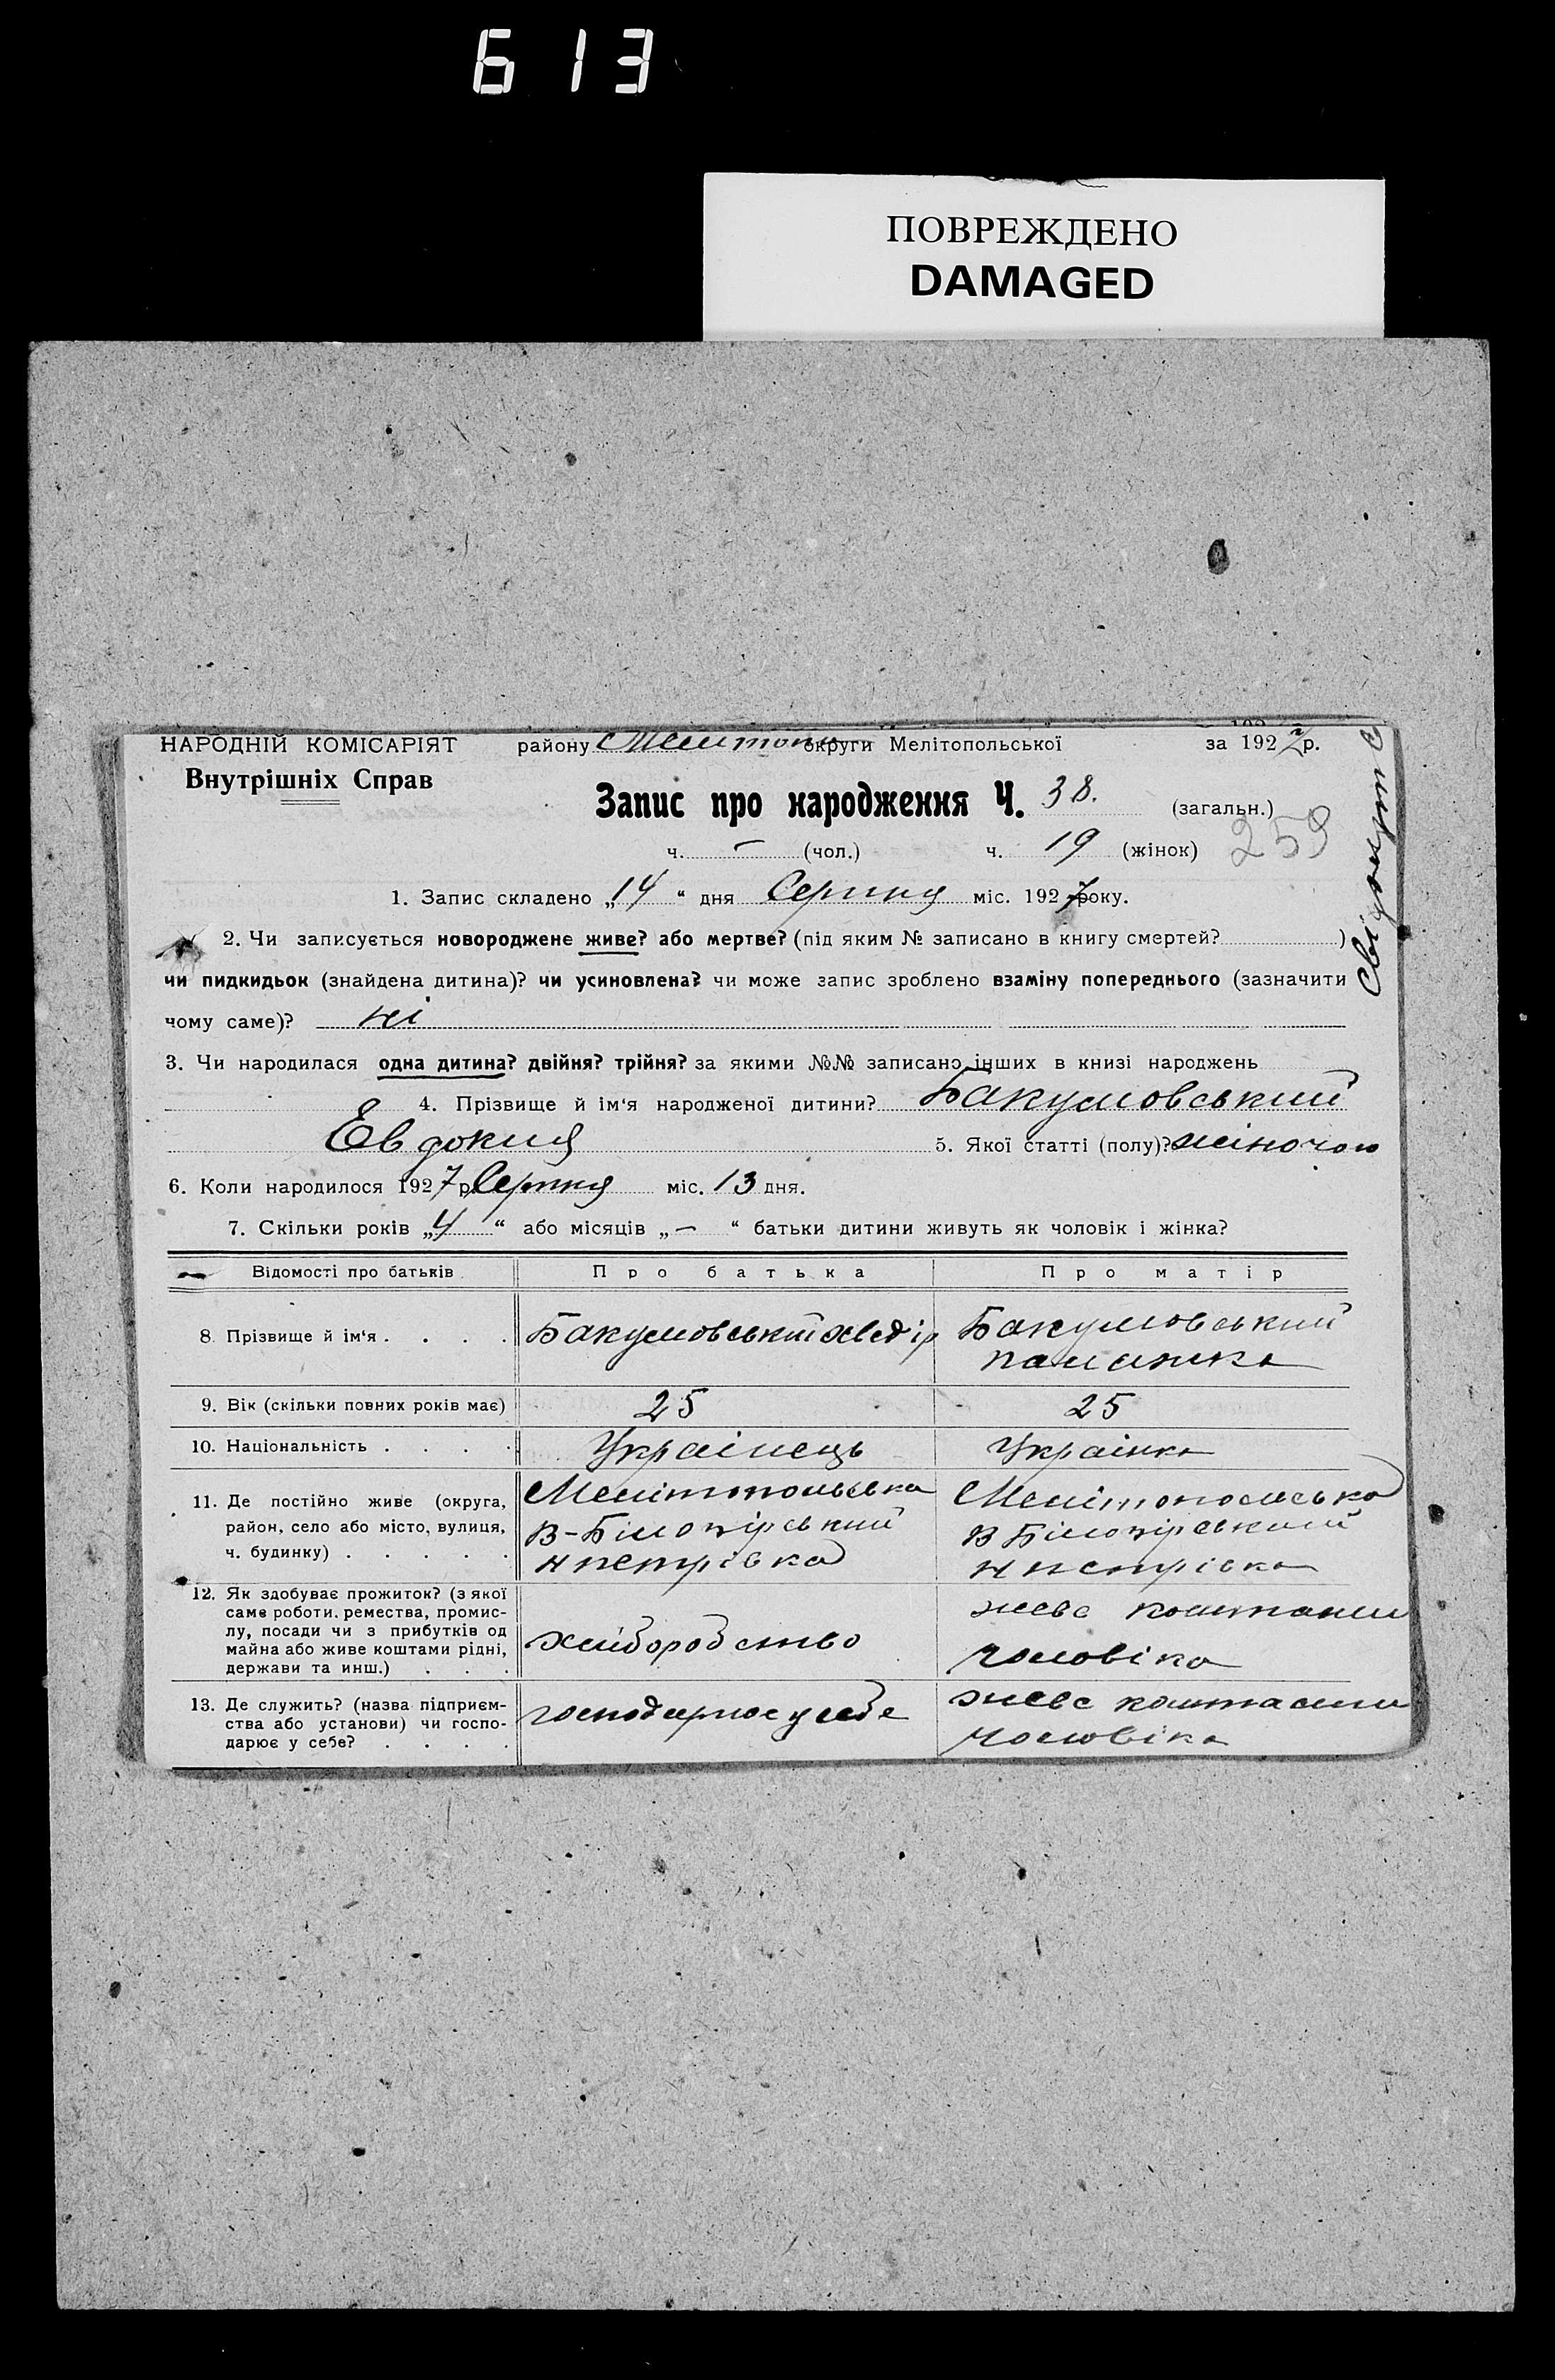 613
ПОВРЕЖДЕНО
DAMAGED
НАРОДНІЙ КОМІСАРІЯТ району округи Мелітопольської за 1927 р.
Внутрішніх Справ
Запис про народження Ч. 38. (загальн.)
259
ч. — (чол.) ч. 19 (жінок)
1. Запис складено „14“ дня Серпня міс. 1927 року.
2. Чи записується новороджене живе? або мертве? (під яким № записано в книгу смертей? )
чи пидкидьок (знайдена дитина)? чи усиновлена? чи може запис зроблено взаміну попереднього (зазначити
чому саме)? ні
3. Чи народилася одна дитина? двійня? трійня? за якими №№ записано інших в книзі народжень
4. Прізвище й ім'я народженої дитини? Бакумовський
Евдокия 5. Якої статті (полу)? жіночою
6. Коли народилося 1927 р. Серпня міс. 13 дня.
7. Скільки років „4“ або місяців „—“ батьки дитини живуть як чоловік і жінка?
Відомості про батьків Про батька Про матір
8. Прізвище й ім'я . . . . Бакумовський Хведір Бакумовський
9. Вік (скільки повних років має) 25 25
10. Національність . . . . Українець Українка
11. Де постійно живе (округа, район, село або місто, вулиця, ч. будинку) . . . . .
Мелітопольська Мелітопольська
В-Білозірський В Білозірський
Нпетрівка Нпетрівка
12. Як здобуває прожиток? (з якої саме роботи, ремества, промислу, посади чи з прибутків од майна або живе коштами рідні, держави та инш.) . . .
хліборобство живе коштами
чоловіка
13. Де служить? (назва підприємства або установи) чи господарює у себе? . . . .
господарює у себе живе коштами
чоловіка